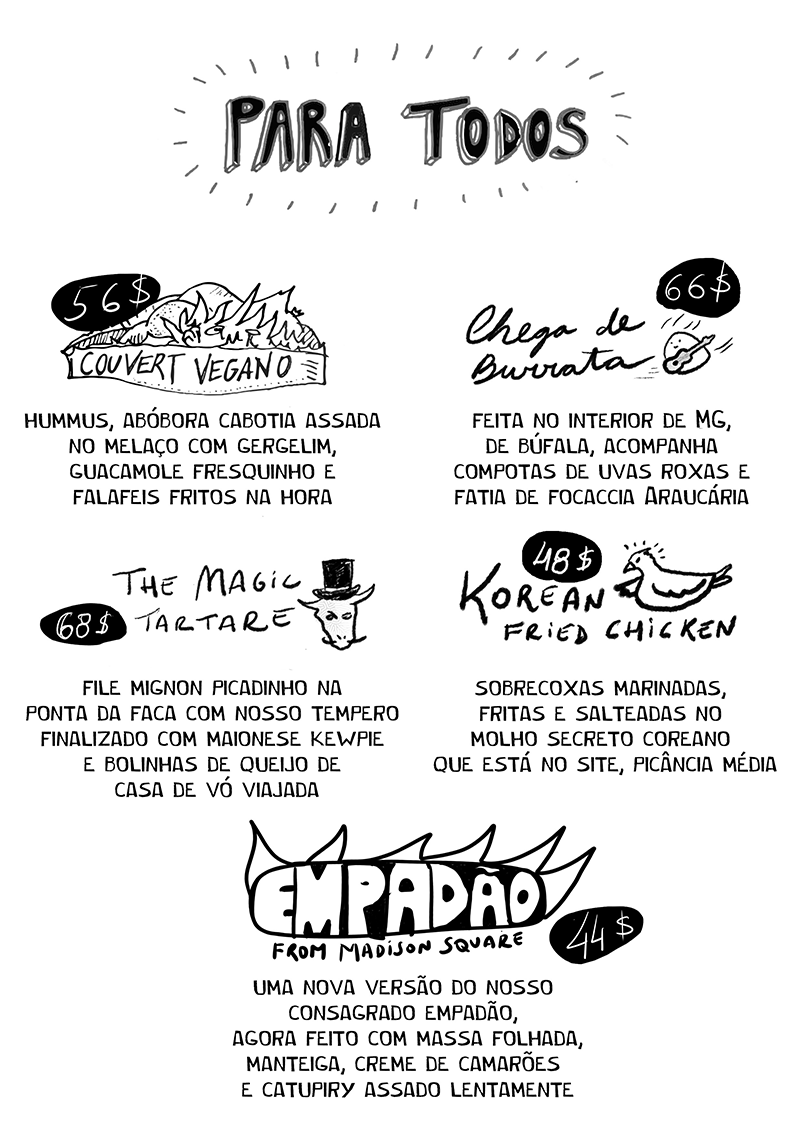 PARA TODOS
56$
COUVERT VEGANO
HUMMUS, ABÓBORA CABOTIA ASSADA
NO MELAÇO COM GERGELIM,
GUACAMOLE FRESQUINHO E
FALAFEIS FRITOS NA HORA
66$
Chega de
Burrata
FEITA NO INTERIOR DE MG,
DE BÚFALA, ACOMPANHA
COMPOTAS DE UVAS ROXAS E
FATIA DE FOCACCIA ARAUCÁRIA
THE MAGIC
68$ TARTARE
FILE MIGNON PICADINHO NA
PONTA DA FACA COM NOSSO TEMPERO
FINALIZADO COM MAIONESE KEWPIE
E BOLINHAS DE QUEIJO DE
CASA DE VÓ VIAJADA
48$
KOREAN
FRIED CHICKEN
SOBRECOXAS MARINADAS,
FRITAS E SALTEADAS NO
MOLHO SECRETO COREANO
QUE ESTÁ NO SITE, PICÂNCIA MÉDIA
EMPADÃO
FROM MADISON SQUARE
44$
UMA NOVA VERSÃO DO NOSSO
CONSAGRADO EMPADÃO,
AGORA FEITO COM MASSA FOLHADA,
MANTEIGA, CREME DE CAMARÕES
E CATUPIRY ASSADO LENTAMENTE